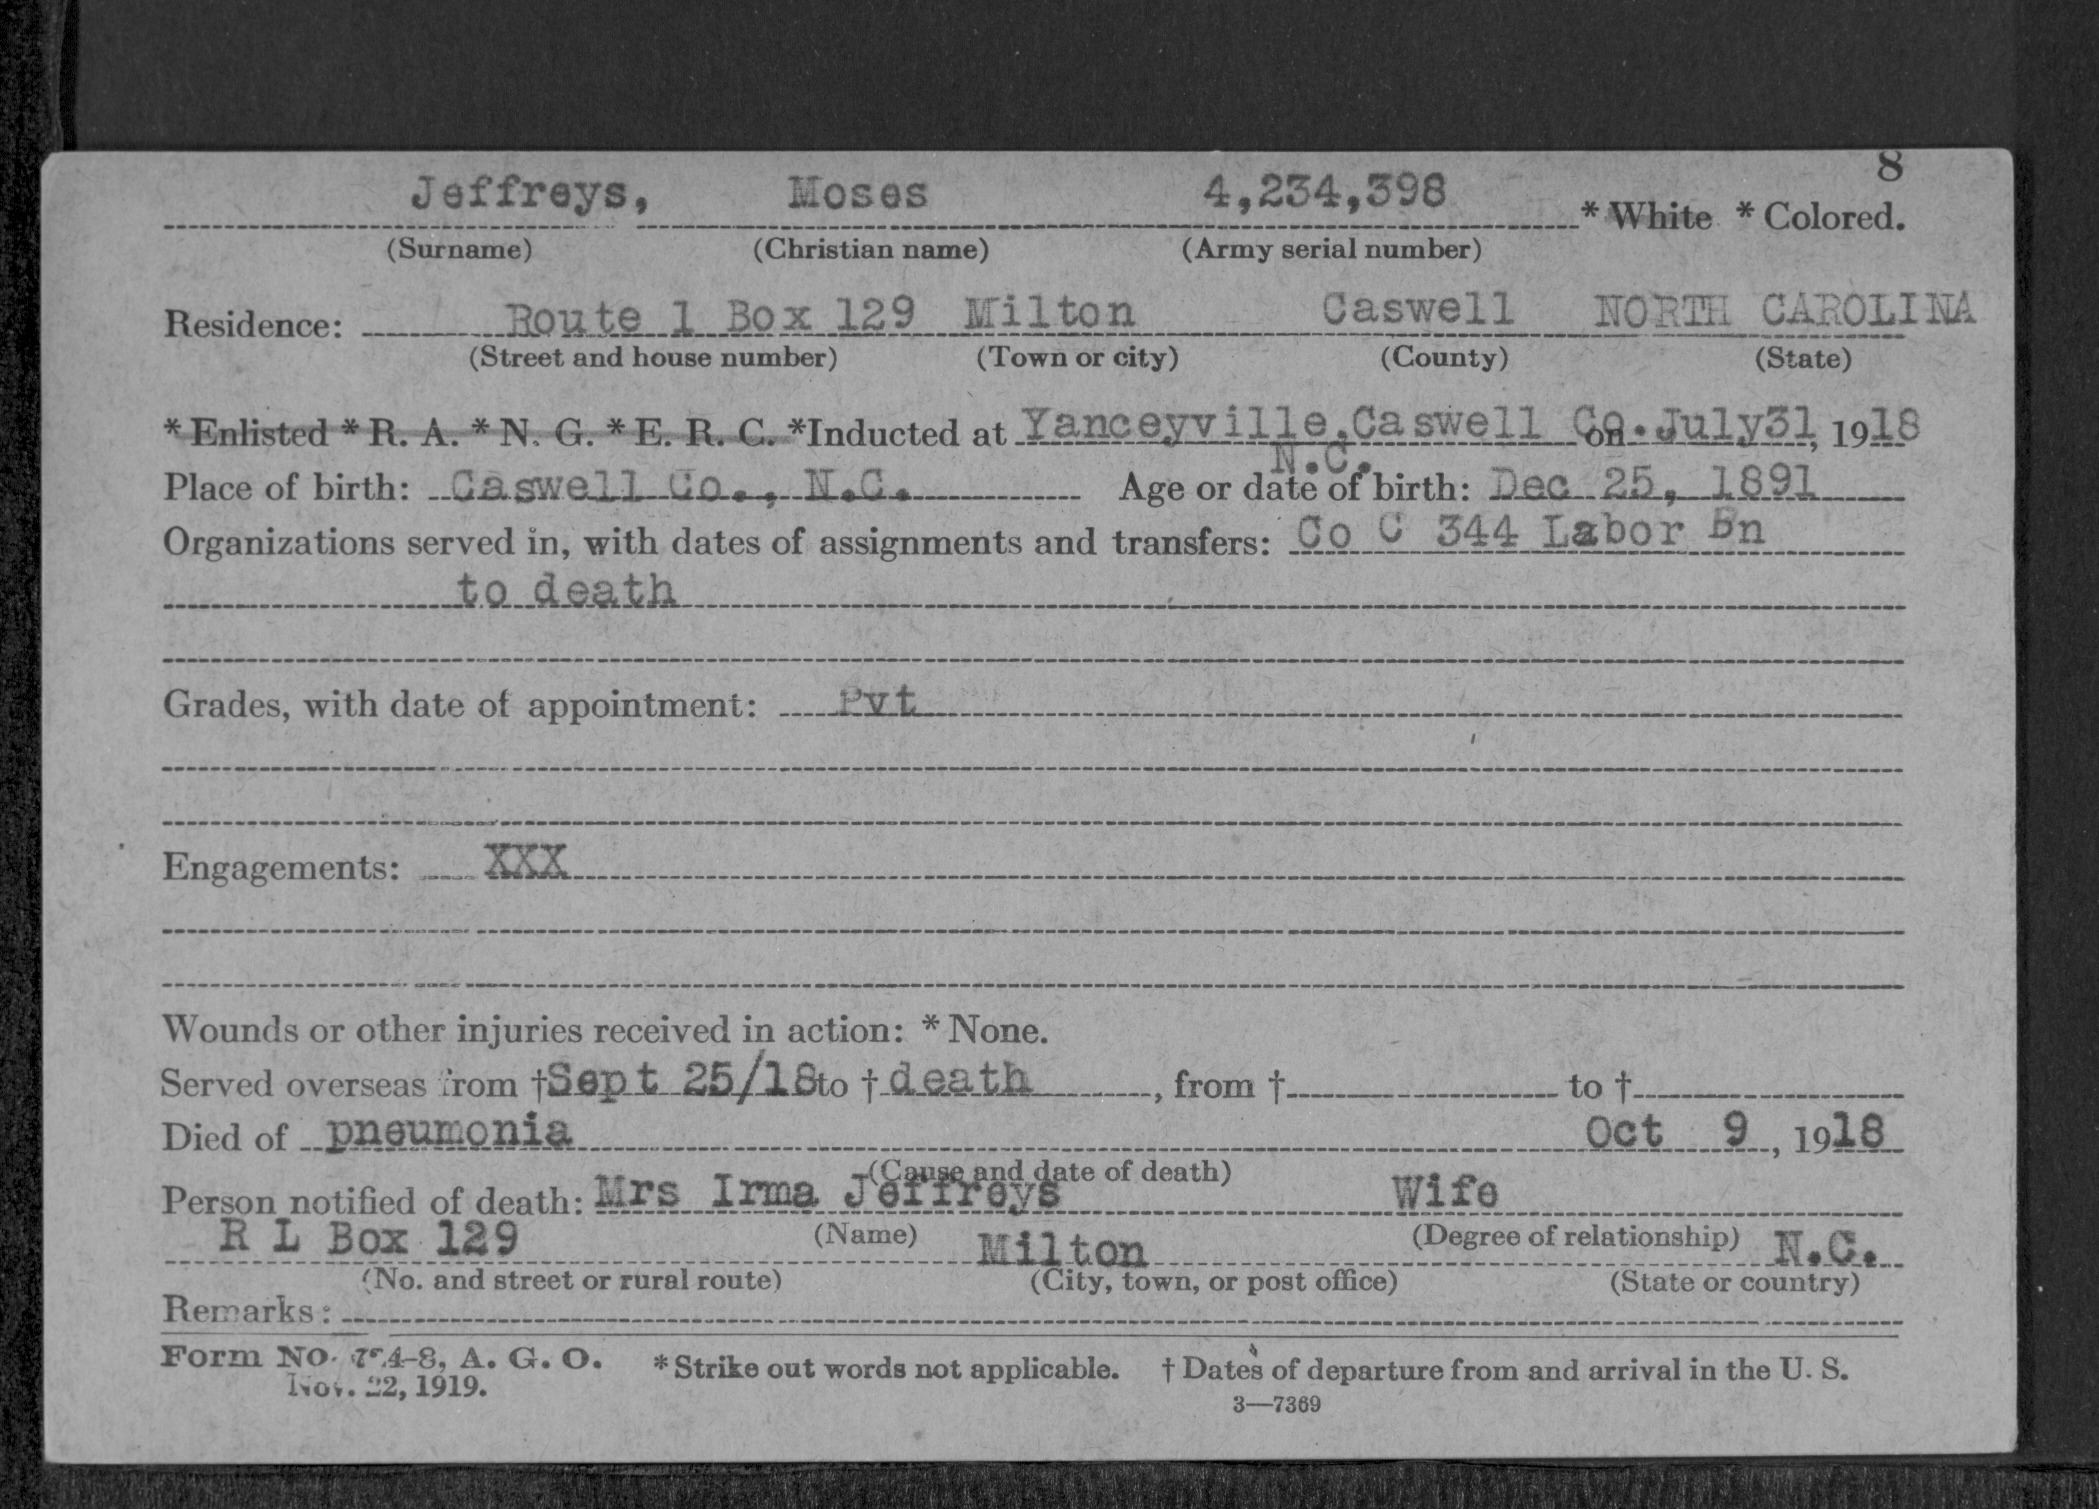 8
Jeffreys, Moses 4,234,398 * White * Colored.
(Surname) (Christian name) (Army serial number)
Residence: Route 1 Box 129 Milton Caswell NORTH CAROLINA
(Street and house number) (Town or city) (County) (State)
* Enlisted * R. A. * N. G. * E. R. C. *Inducted at Yanceyville,Caswell Co. on July31, 1918
N.C.
Place of birth: Caswell Co., N.C. Age or date of birth: Dec 25, 1891
Organizations served in, with dates of assignments and transfers: Co C 344 Labor Bn
to death
Grades, with date of appointment: Pvt
Engagements: XXX
Wounds or other injuries received in action: * None.
Served overseas from †Sept 25/18 to † death, from † to †
Died of pneumonia Oct 9, 1918
(Cause and date of death)
Person notified of death: Mrs Irma Jeffreys Wife
(Name) (Degree of relationship)
R L Box 129 Milton N.C.
(No. and street or rural route) (City, town, or post office) (State or country)
Remarks:
Form No. 724-8, A. G. O. * Strike out words not applicable. † Dates of departure from and arrival in the U. S.
Nov. 22, 1919.
3—7369